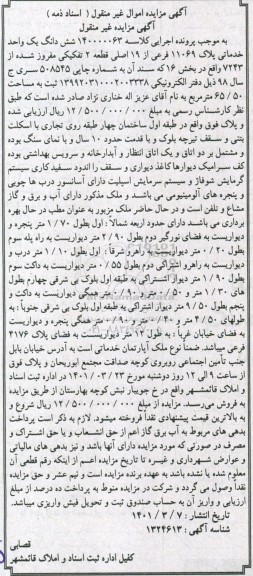 آگهی مزایده اموال غیر منقول ( اسناد ذمه )
آگهی مزایده غیر منقول
به موجب پرونده اجرایی کلاسه ۱۴۰۰۰۰۰۶۳ شش دانگ یک واحد
خدماتی پلاک ۱۱۰۶۹ فرعی از ۱۹ اصلی قطعه ۲ تفکیکی مفروز شده از
۷۲۴۳ واقع در بخش ۱۶ که سند آن به شماره چاپی ۵۰۸۵۴۵ سری ج
سال ۹۸ ذیل دفتر الکترونیکی ۱۳۹۹۲۰۳۱۰۰۰۲۰۰۳۳۳۸ ثبت به مساحت
۶۵/۵۰ مترمربع به نام آقای عزیز اله خناری نژاد صادر شده است که طبق
نظر کارشناس رسمی به مبلغ ۱۲/۵۰۰/۰۰۰/۰۰۰ ریال ارزیابی شده
و پلاک فوق واقع در طبقه اول ساختمان چهار طبقه روی تجاری با اسکلت
بتنی و سقف تیرچه بلوک و با قدمت حدود ۱۰ سال و با نمای سنگ بوده
و مشتمل بر دو اتاق و یک اتاق انتظار و آبدارخانه و سرویس بهداشتی بوده
کف سرامیک دیوارها کاغذ دیواری و سقف را اندود سفید کاری سیستم
گرمایش شوفاژ و سیستم سرمایش اسپلیت دارای آسانسور درب ها چوبی
و پنجره های آلومینیومی می باشد و ملک مذکور دارای آب و برق و گاز
مشاع و تلفن است و در حال حاضر ملک مزبور به عنوان مطب در حال بهره
برداری می باشد دارای حدود اربعه شمالا: اول بطول ۱/۷۰ متر پنجره و
دیواریست به فضای نورگیر دوم بطول ۲/۹۰ متر دیواریست به راه پله سوم
بطول ۰/۲۰ متر دیواریست به راهرو شرقا : اول بطول ۱/۱۰ متر درب و
دیواریست به راهرو اشتراکی دوم بطول ۰/۵۵ متر دیواریست به داکت سوم
بطول ۱/۹۰ متر دیوار اشتراکی به طبقه اول بلوک بی شرقی چهارم بطول
های ۱/۳۰ متر و ۰/۵۰ متر و ۱/۴۰ متر همگی دیواریست به داکت و
پنجم بطول ۹/۵۰ متر دیوار اشتراکی به طبقه اول بلوک بی شرقی جنوبا : به
طولهای ۴/۵۰ متر و ۰/۸۰ متر و ۰/۹۰ متر همگی پنجره و دیواریست
به فضای خیابان غربا : به طول ۱۴ متر دیواریست به فضای پلاک ۴۱۷۶
فرعی میباشد. ضمنا نوع ملک آپارتمان خدماتی است به آدرس خیابان بابل
جنب تأمین اجتماعی روبروی کوچه صداقت مجتمع ابوریحان و پلاک فوق
از ساعت ۹ الی ۱۲ روز دوشنبه مورخ ۱۴۰۱/۰۳/۲۳ در اداره ثبت اسناد
و املاک قائمشهر واقع در خ جویبار نبش کوچه بهارستان از طریق مزایده
به فروش می رسد. مزایده از مبلغ ۱۲/۵۰۰/۰۰۰/۰۰۰ ریال شروع و
به بالاترین قیمت پیشنهادی نقدا فروخته میشود. لازم به ذکر است پرداخت
بدهی های مربوط به آب برق گاز اعم از حق انشعاب و یا حق اشتراک و
مصرف در صورتی که مورد مزایده دارای آنها باشد و نیز بدهی های مالیاتی
و عوارض شهرداری و غیره تا تاریخ مزایده اعم از اینکه رقم قطعی آن
معلوم شده یا نشده باشد به عهده برنده مزایده است و نیم عشر و حق مزایده
نقدا وصول می گردد و شرکت در مزایده منوط به پرداخت ده درصد از مبلغ
ارزیابی و واریز آن به حساب صندوق ثبت و تحویل فیش واریزی میباشد.
تاریخ انتشار : ۱۴۰۱/۳/۷
شناسه آگهی : ۱۳۲۴۶۱۳
قصابی
کفیل اداره ثبت اسناد و املاک قائمشهر